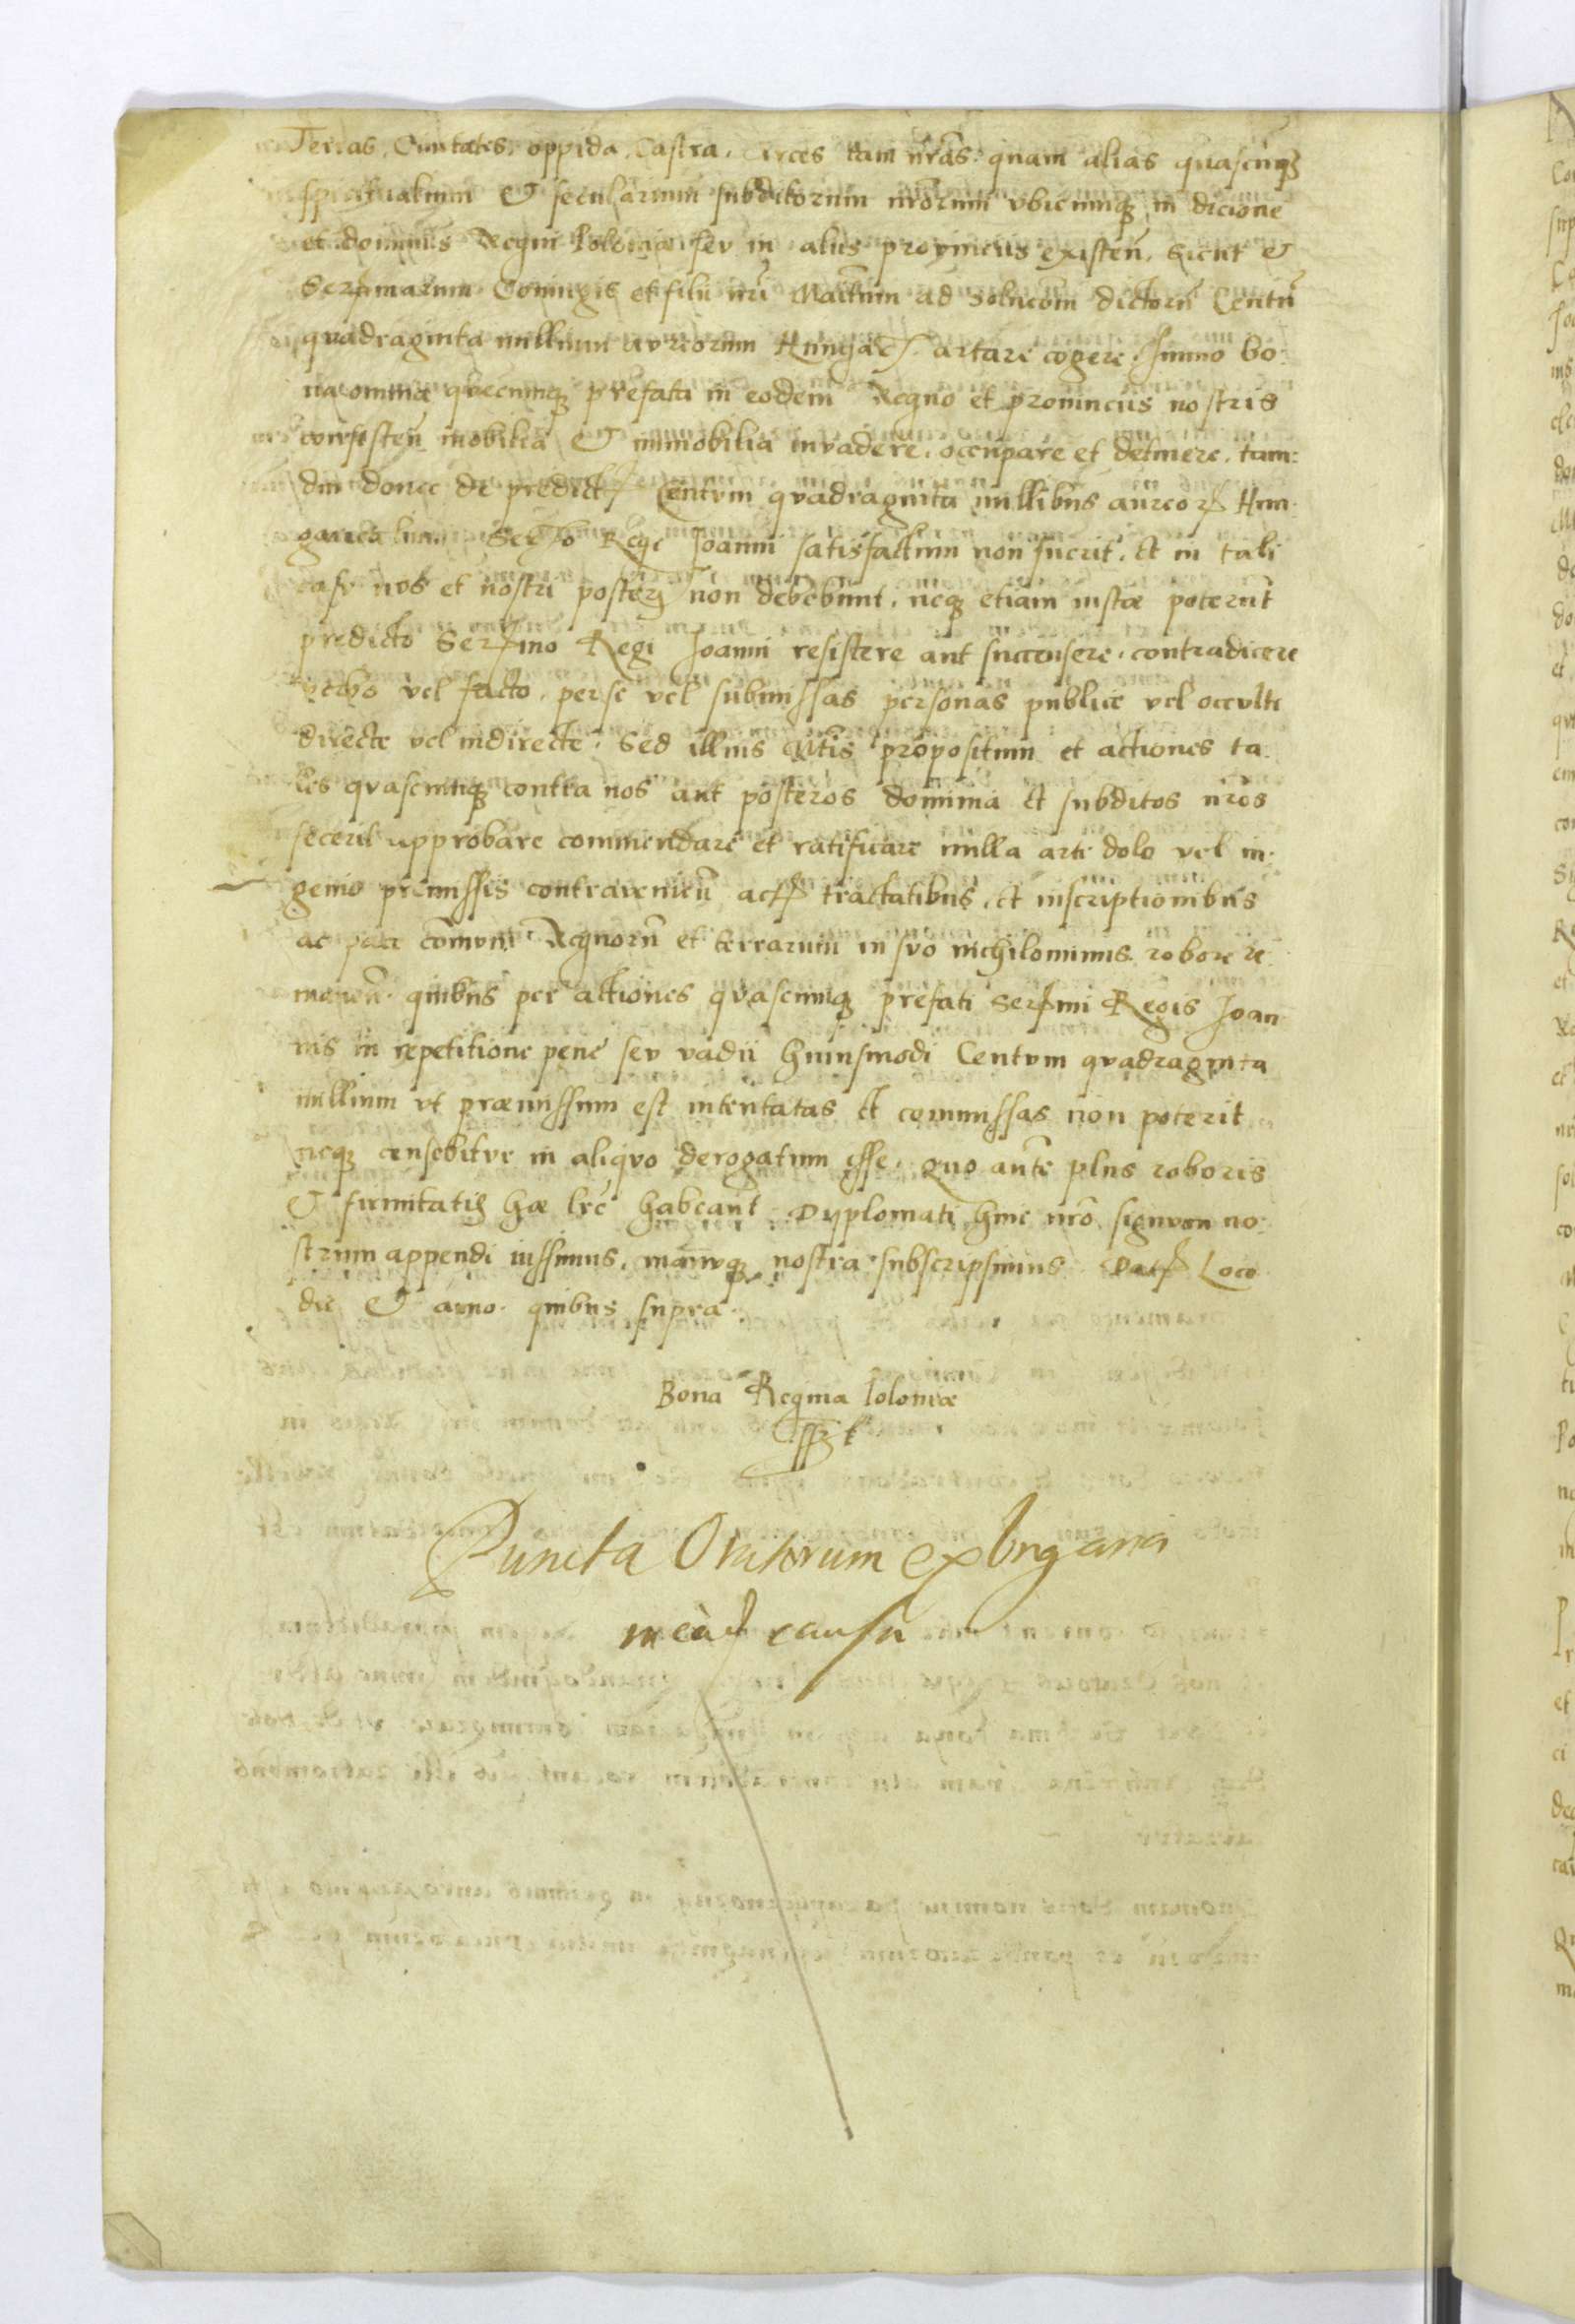 Terras, Ciuitates, oppida, Castra, Arces tam nr̃as quam alias quascũq₃
spiritualium et secularium subditorum nrorum vbicumq₃ in dicione
et dominiis Regni Poloniæ seu in aliis provinciis existen̄. Sicut et
Serꝑmarum Coniugis et filii nrī Maĩtum ad Solucom̃ dictorū Centū
quadraginta millium aureorum Hungac̃ artare cogere, Immo bo:
na omnia quecumq₃ prefata in eodem Regno et prouinciis nostris
consisten̄ mobilia et immobilia invadere, occupare et detinere, tam:
diu donec de predict Centum quadraginta millibus aureoꝝ Hun:
garicalium Sermo Rege Joanni satisfactum non fuerit, et in tali
casu nos et nostri posteri non debebunt, neq₃ etiam iuste poterūt
predicto Serꝑmo Regi Joanni resistere aut succensere, contradicere
verbo vel facto, perse vel submissas personas publice vel occulte
directe vel indirecte. Sed illius Mtis propositum et actiones ta:
les quascumq₃ contra nos aut posteros dominia et subditos nr̃os
fecerit approbare commendare et ratificare nulla arte dolo vel in:
genio premissis contravenieñ actꝭ tractatibus, et inscriptionibus
ac paci com̄uni Regnorū et terrarum in suo nichilominus robore re:
manen̄ quibus per actiones quascumq₃ prefati Serꝑmi Regis Joan
nis in repetitione pene seu vadii huiusmodi Centum quadraginta
millium vt præmissum est intentatas et commissas non poterit
neq₃ censebitur in aliquo derogatum esse. Quo aūte plus roboris
et firmitatis hæ lrē habeant Dyplomati huic nr̃o signum no:
strum appendi iussimus, manuq₃ nostra subscripsimus. Datꝭ Loco
die et anno quibus supra.
Bona Regina Poloniæ
sst
Puncta Oratorum ex Ungaria
in eād causa